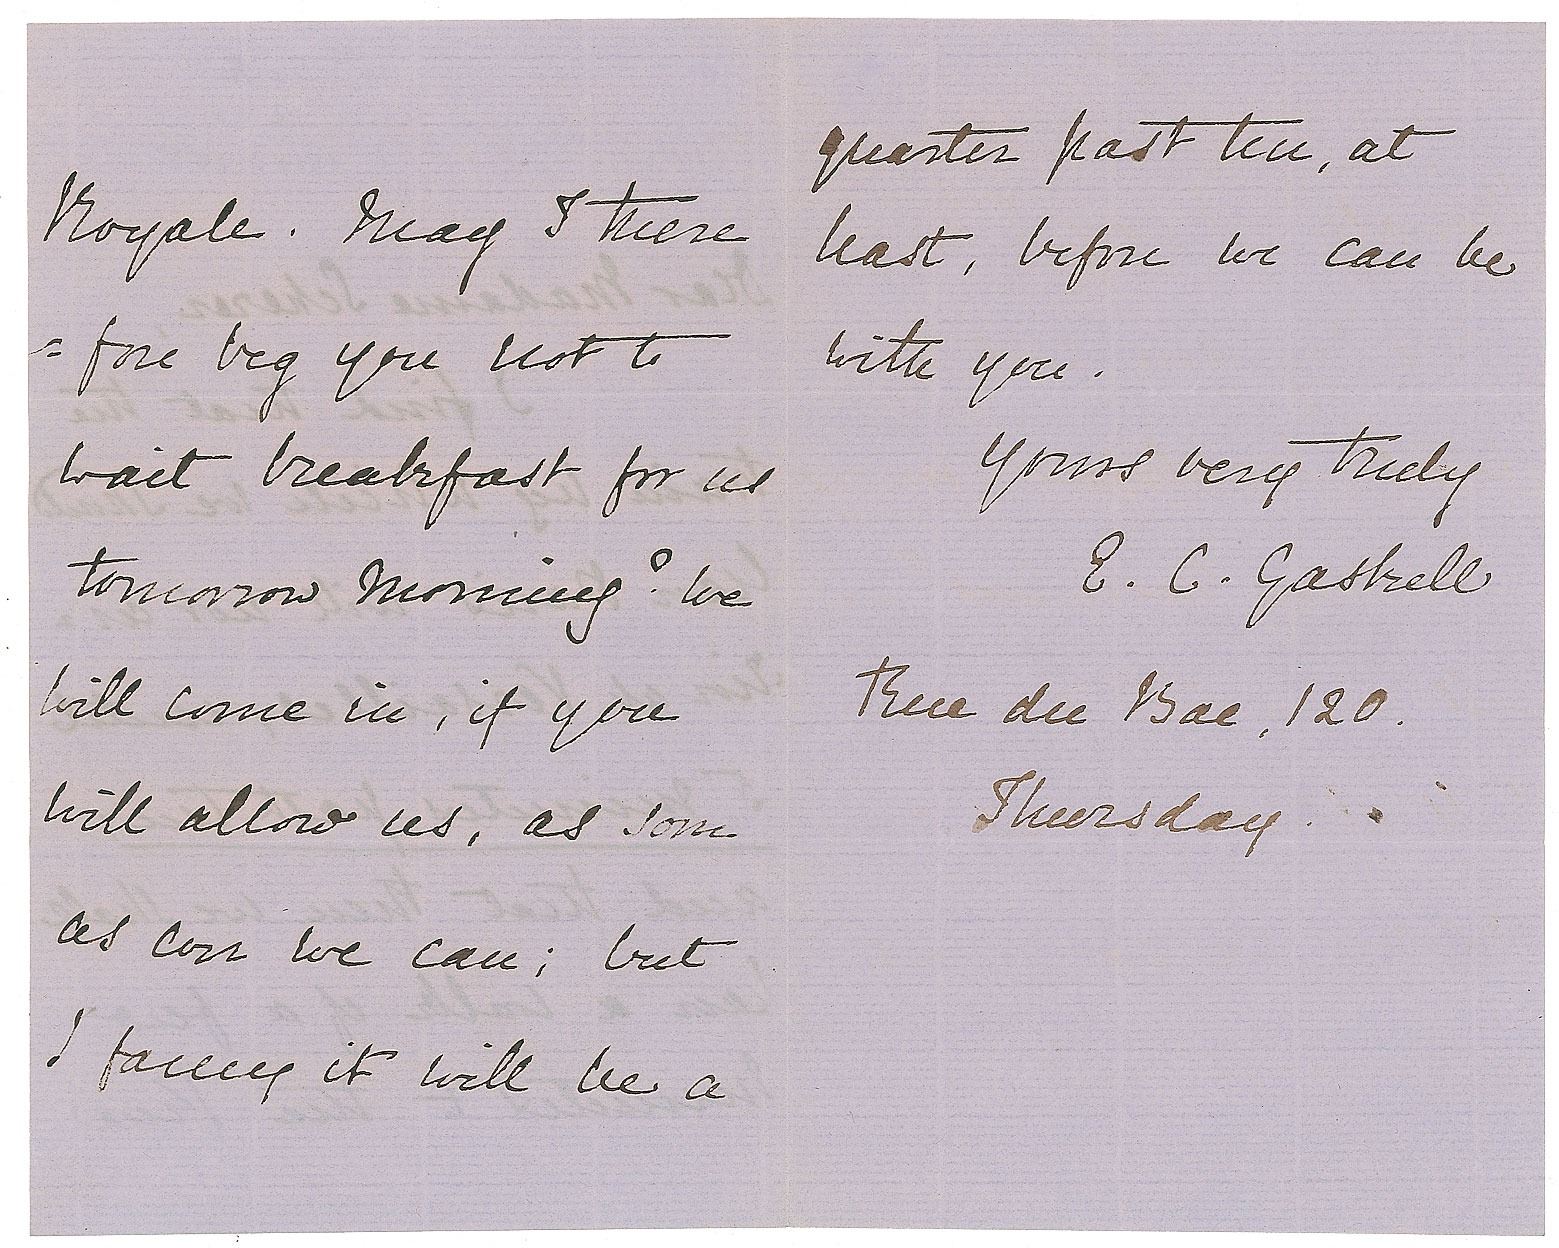 Royale. May I there
= fore beg you not to
wait breakfast for us
tomorrow morning? We
will come in, if you
will allow us, as soon
as ever we can; but
I fancy it will be a
quarter past ten, at
least, before we can be
with you.
Yours very truly
E. C. Gaskell
Rue du Bac, 120.
Thursday.